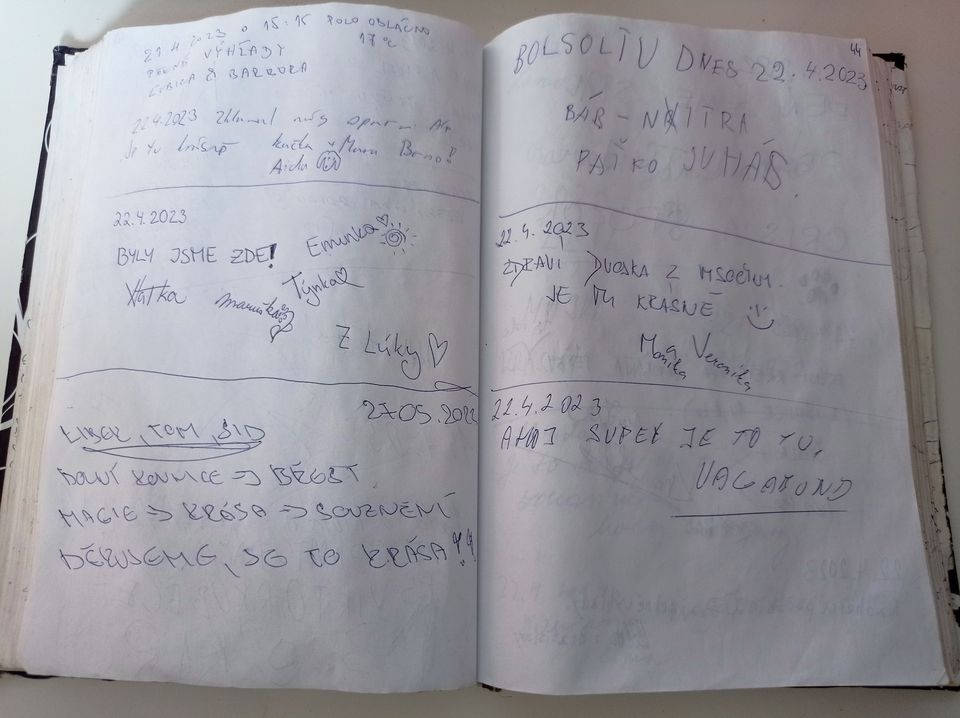 21.4.2023 o 15:15 POLO OBLAČNO
17°C
PEKNÉ VÝHĽADY
ĽUBICA & BARBORA
22.4.2023 nás
je tu krásně kučka
Aida
22.4.2023
BYLY JSME ZDE! Emunka
Katka Mamuška Týnka
Z Lúky
27.05.2022
LIBER, TOM, SID
DOLNÍ KOUNICE → BĚGST
MAGIE → KRÁSA → SOUZNĚNÍ
DĚKUJEME, JE TO KRÁSA!!
44
BOLSOLTU DNES 22.4.2023
BÁB - NITRA
PAŤKO JUHÁS
22.4.2023
ZDRAVÍ DVOJKA Z
JE TU KRASNĚ
Monika a Veronika
22.4.2023
AHOJ SUPER JE TO TU,
VAGABUND